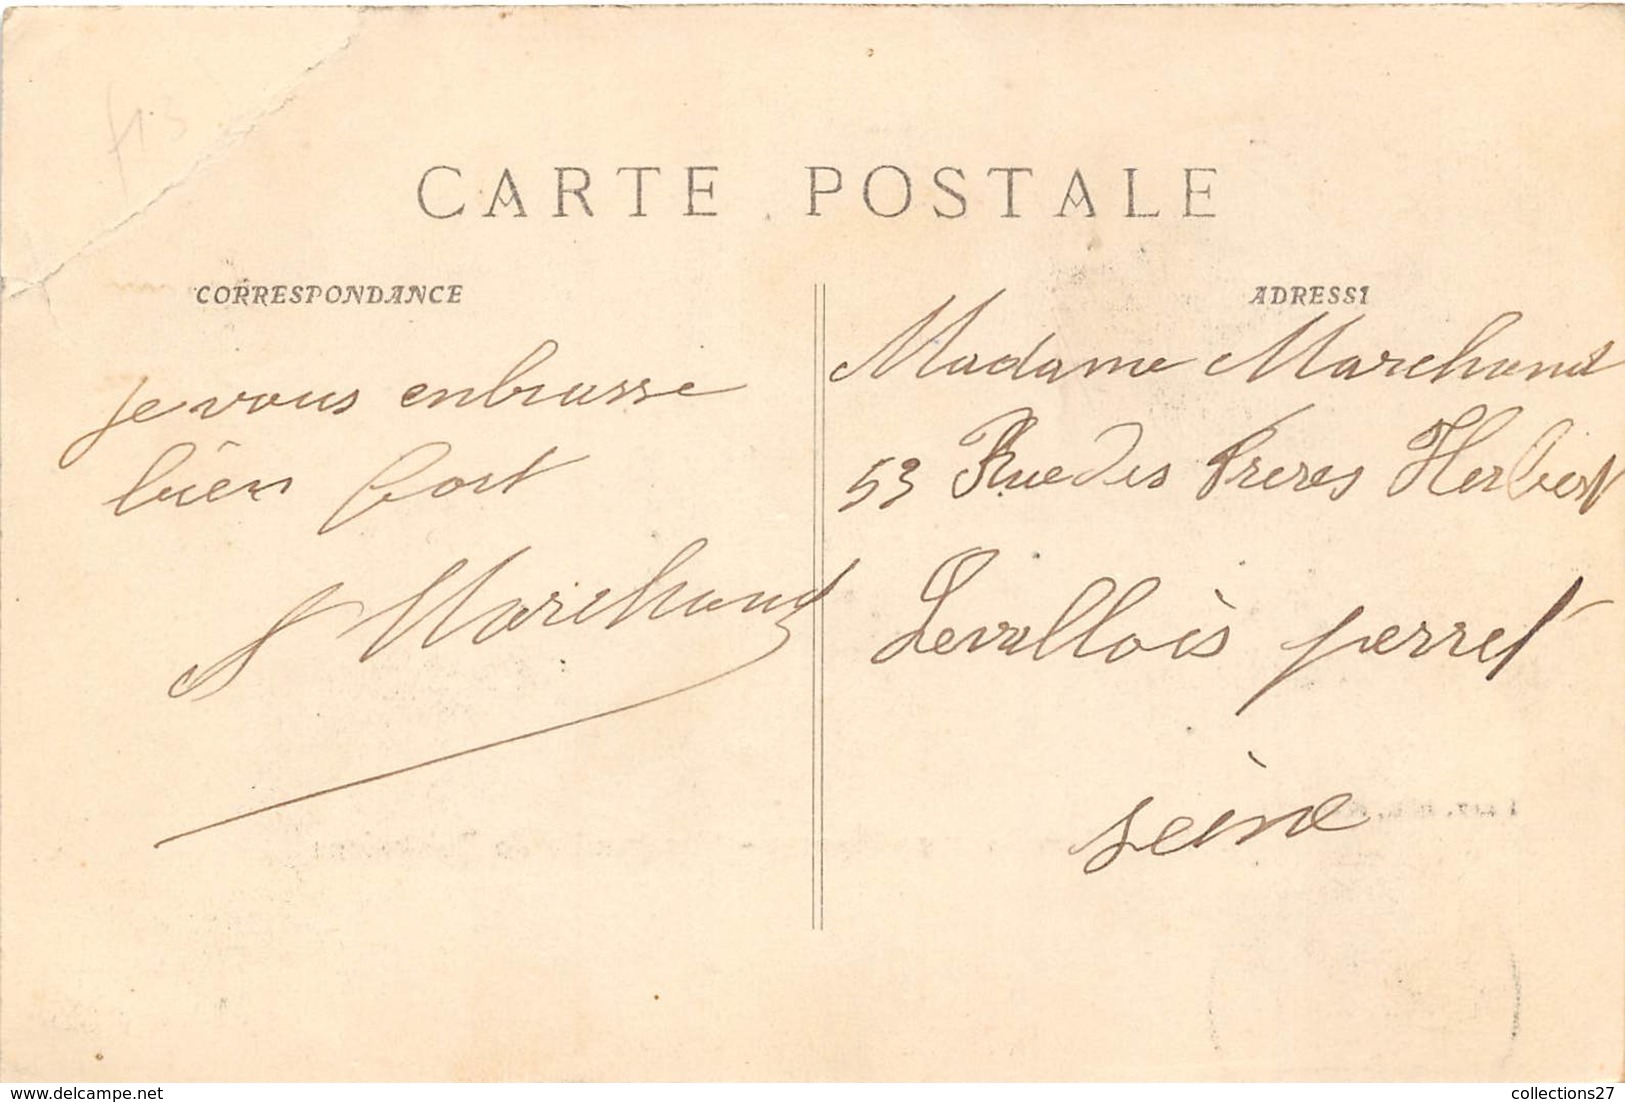 CARTE POSTALE
CORRESPONDANCE
je vous enbrasse
bien fort
Marchand
ADRESSE
Madame Marchand
53 Rue des Freres Herbert
Levallois perret
seine
www.delcampe.net
collections27